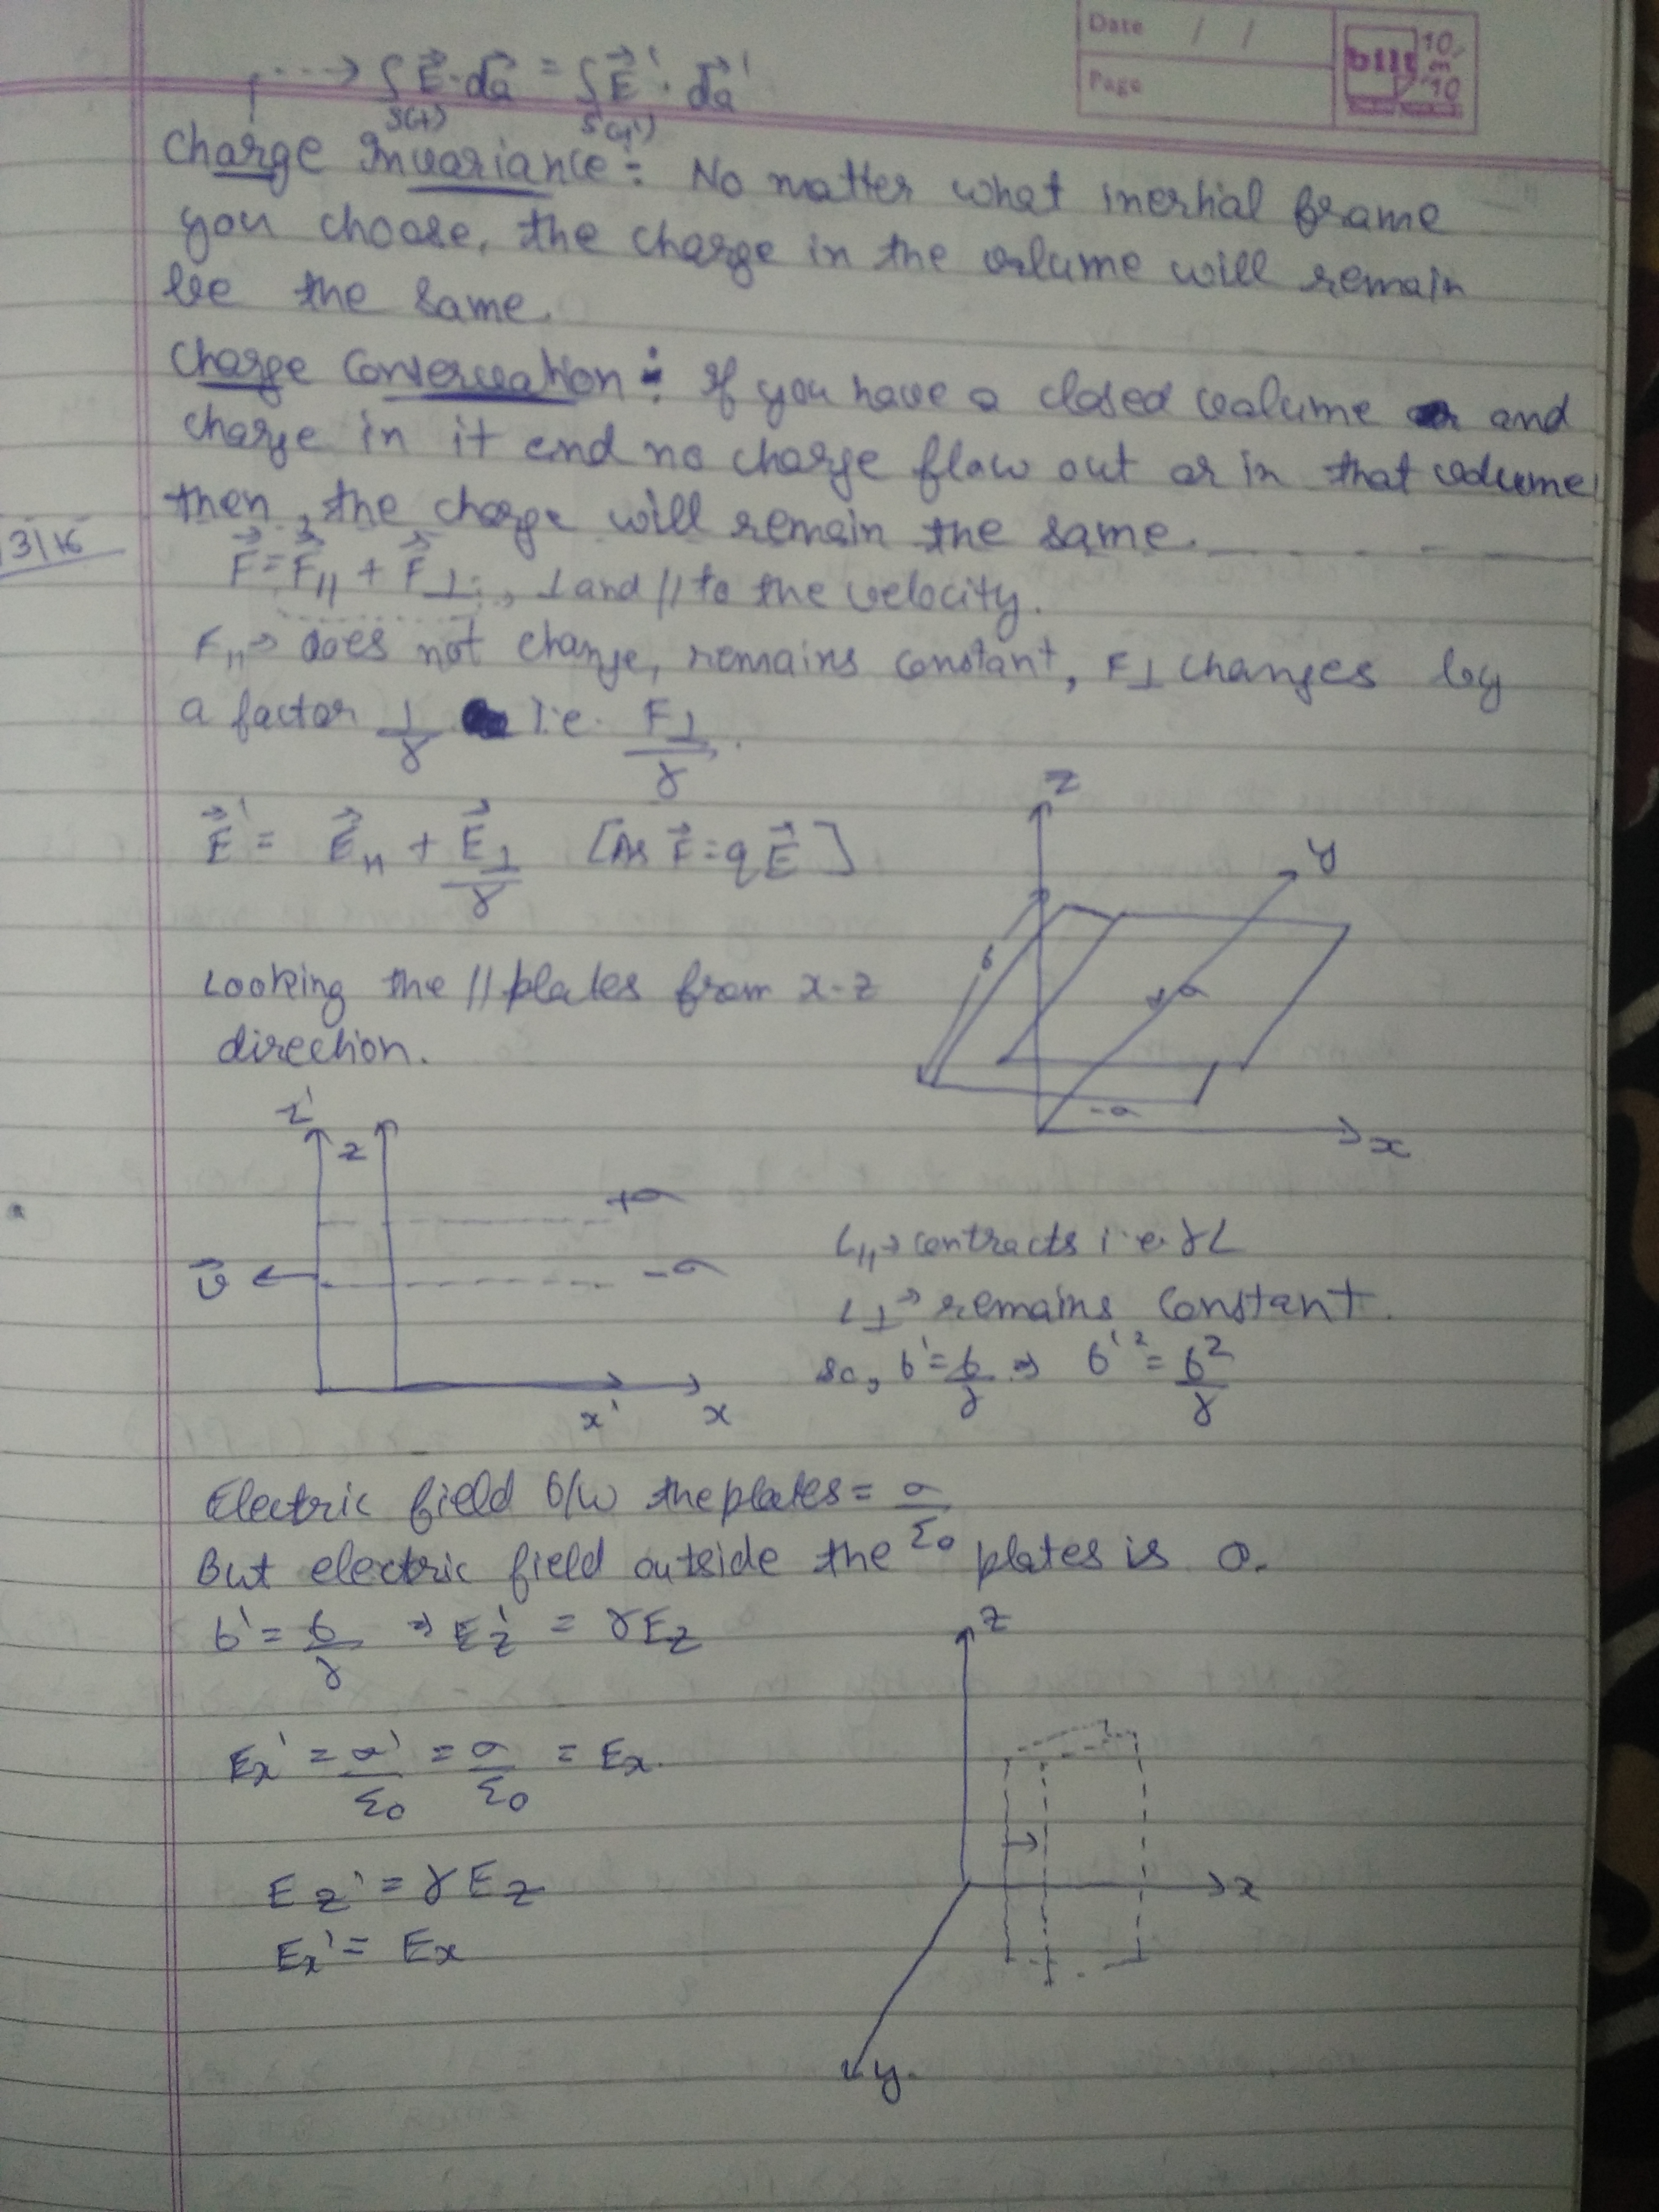 Date / /
Page
bilt 10 on 10
⇢ ∫ E⃗·da⃗ = ∫ E⃗'·da⃗'
S(t) S'(t')
Charge Invariance :- No matter what inertial frame
you choose, the charge in the volume will remain
be the same.
Charge Conservation :- If you have a closed volume and
charge in it and no charge flow out or in that volume
then, the charge will remain the same.
3/16
F⃗ = F⃗∥ + F⃗⊥ , ⊥ and ∥ to the velocity.
F∥ → does not change, remains constant, F⊥ changes by
a factor 1/γ i.e. F⊥/γ.
E⃗' = E⃗∥ + E⃗⊥/γ [As F⃗ = qE⃗]
z
y
b
+σ
-σ
x
Looking the ∥ plates from x-z
direction.
z' z
+σ
v⃗ -σ
x' x
L∥ → contracts i.e. γL
L⊥ → remains constant.
so, b' = b/γ ⇒ b'² = b²/γ
Electric field b/w the plates = σ/ε₀
But electric field outside the plates is 0.
b' = b/γ ⇒ Ez' = γEz
Ex' = σ'/ε₀ = σ/ε₀ = Ex.
Ez' = γEz
Ex' = Ex
z
x
y.